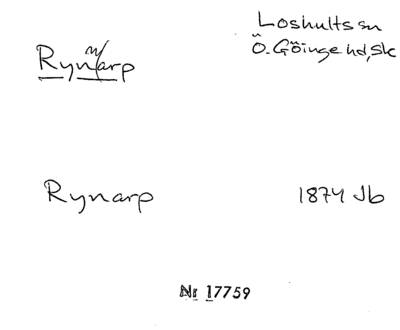 Loshults sn
Rynarp
Ö. Göinge hd, Sk
Rynarp
1874 Jb
Nr 17759